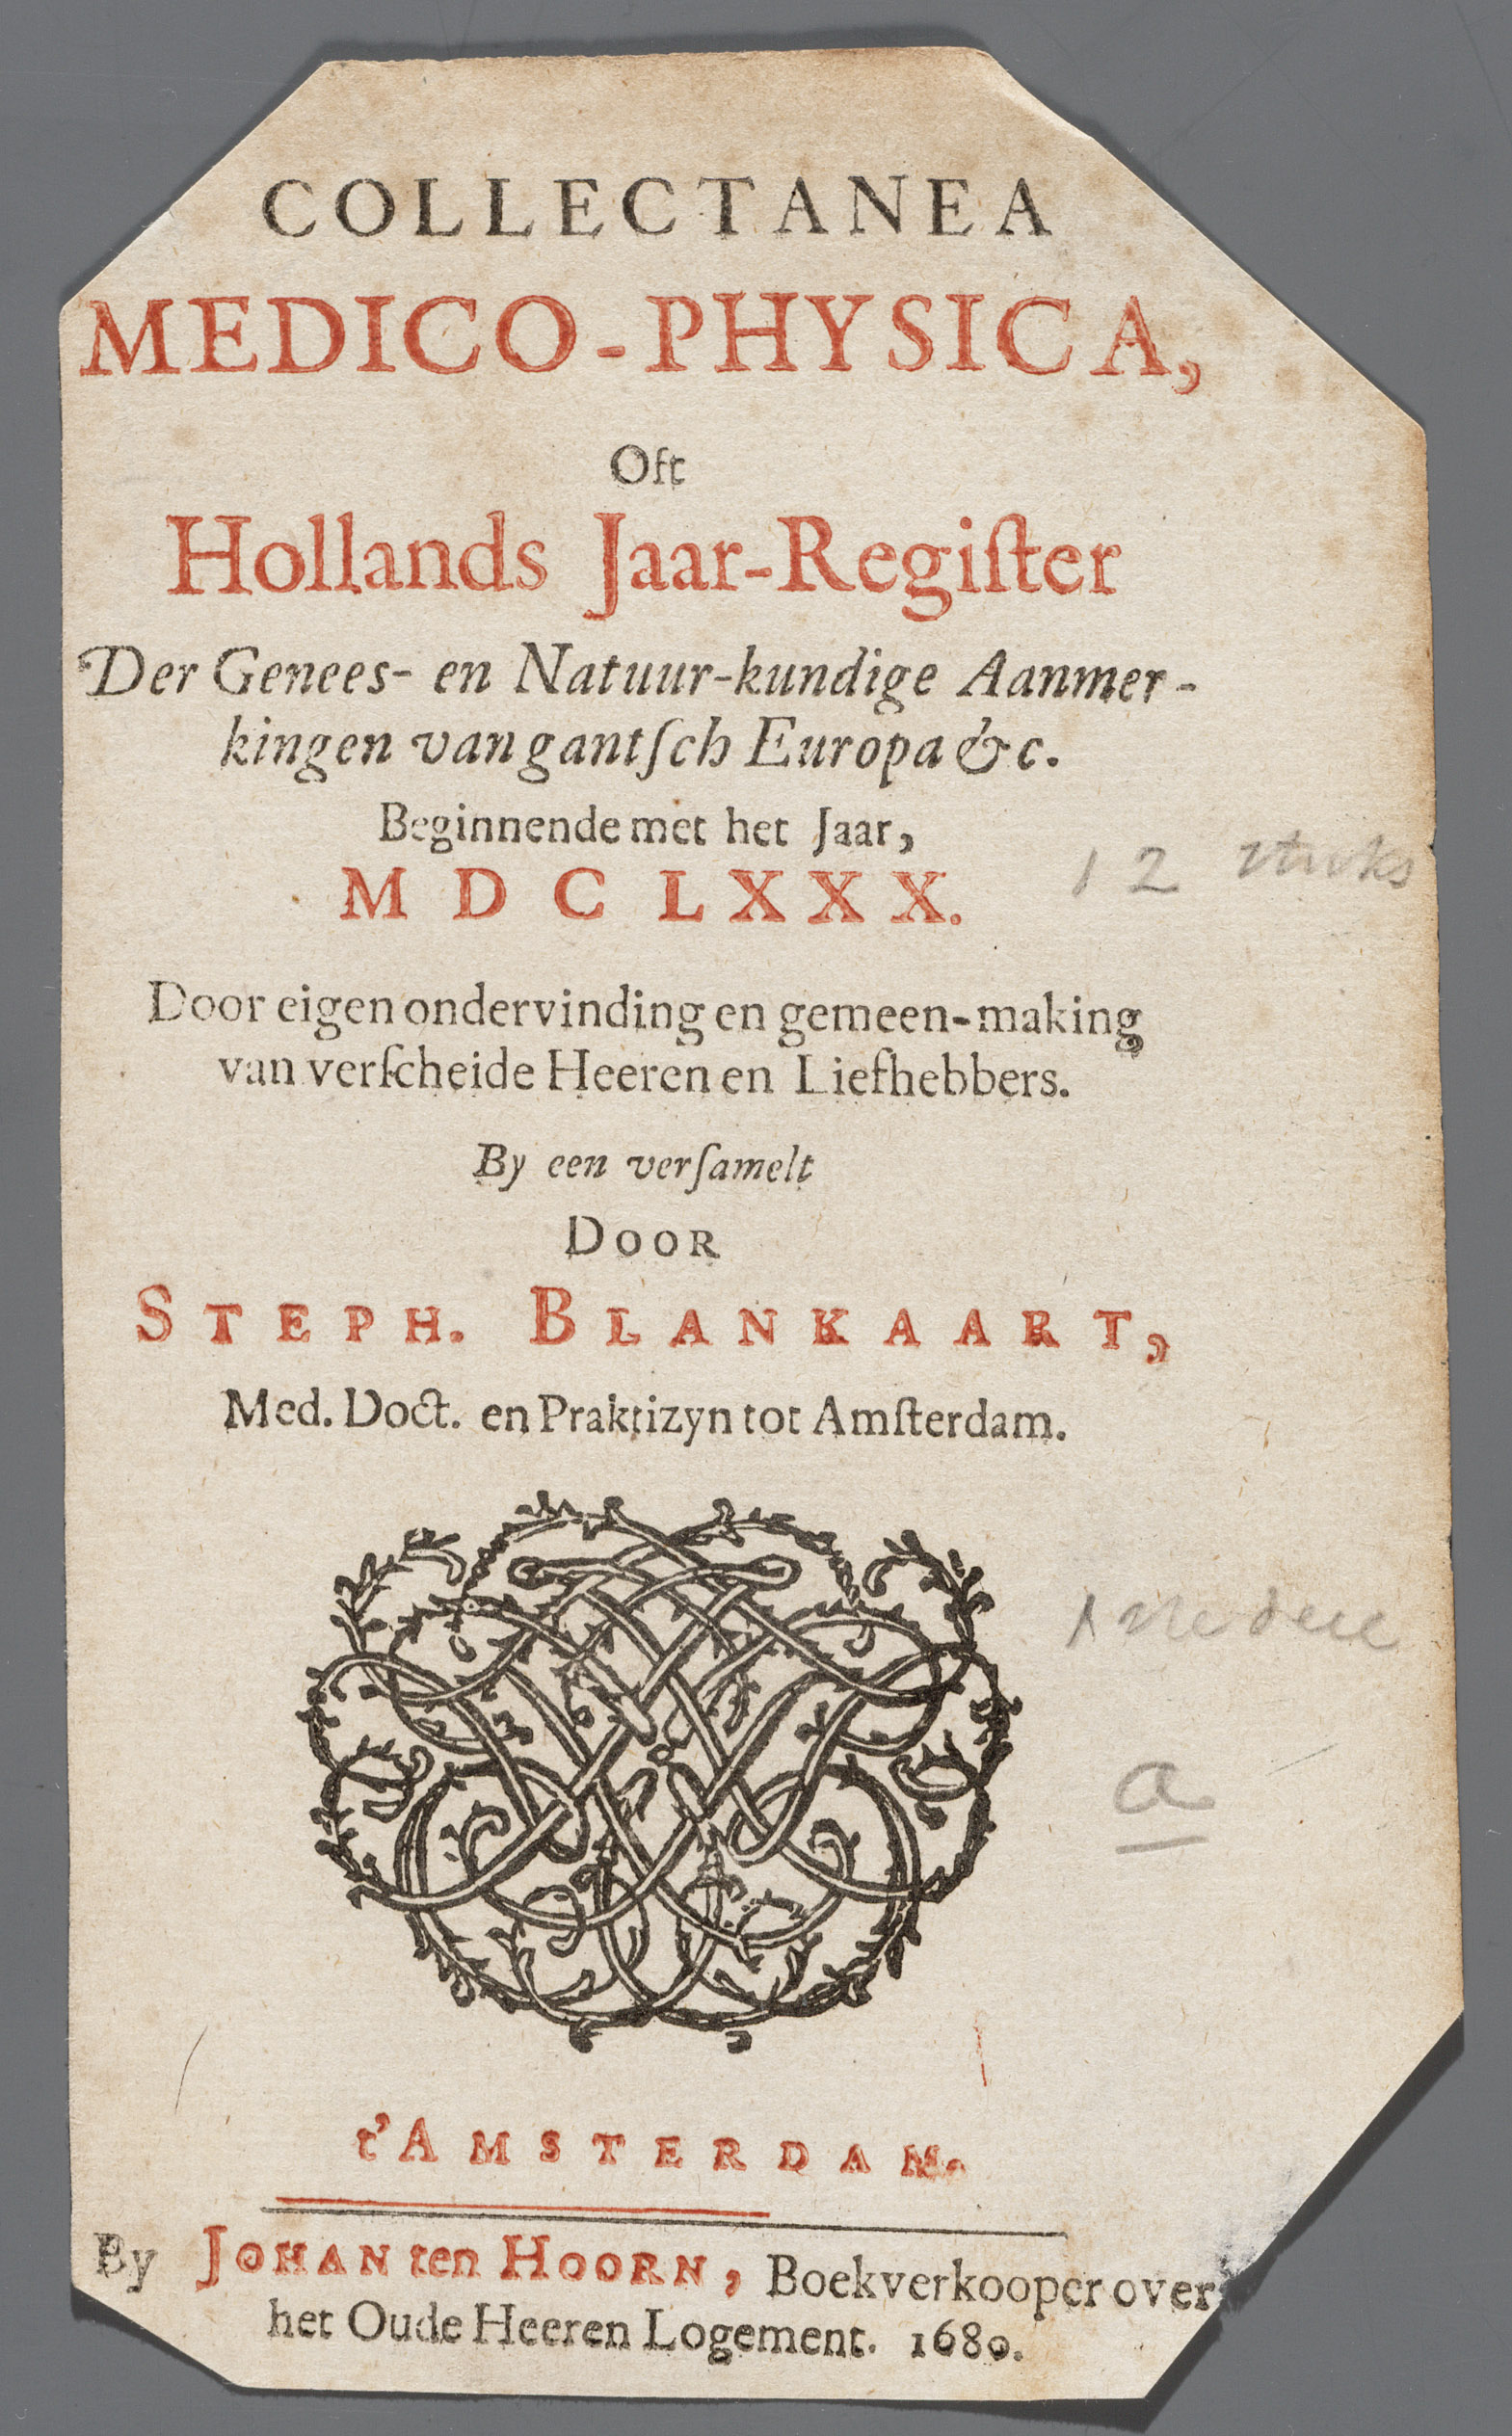 COLLECTANEA
MEDICO-PHYSICA,
Oft
Hollands Jaar-Regiſter
Der Genees- en Natuur-kundige Aanmer-
kingen van gantſch Europa &c.
Beginnende met het Jaar,
MDCLXXX.
12 stuks
Door eigen ondervinding en gemeen-making
van verſcheide Heeren en Liefhebbers.
By een verſamelt
DOOR
STEPH. BLANKAART,
Med. Doct. en Praktizyn tot Amſterdam.
a
t'AMSTERDAM.
By JOHAN ten HOORN, Boekverkooper over
het Oude Heeren Logement. 1680.